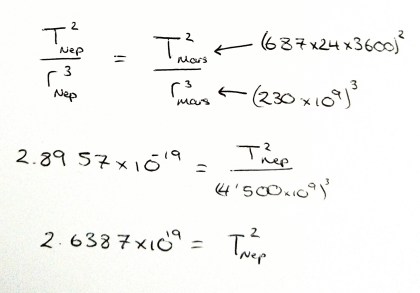 T²Nep / r³Nep = T²Mars / r³Mars ← (687×24×3600)²
← (230×10⁹)³
2.8957×10⁻¹⁹ = T²Nep / (4'500×10⁹)³
2.6387×10¹⁹ = T²Nep